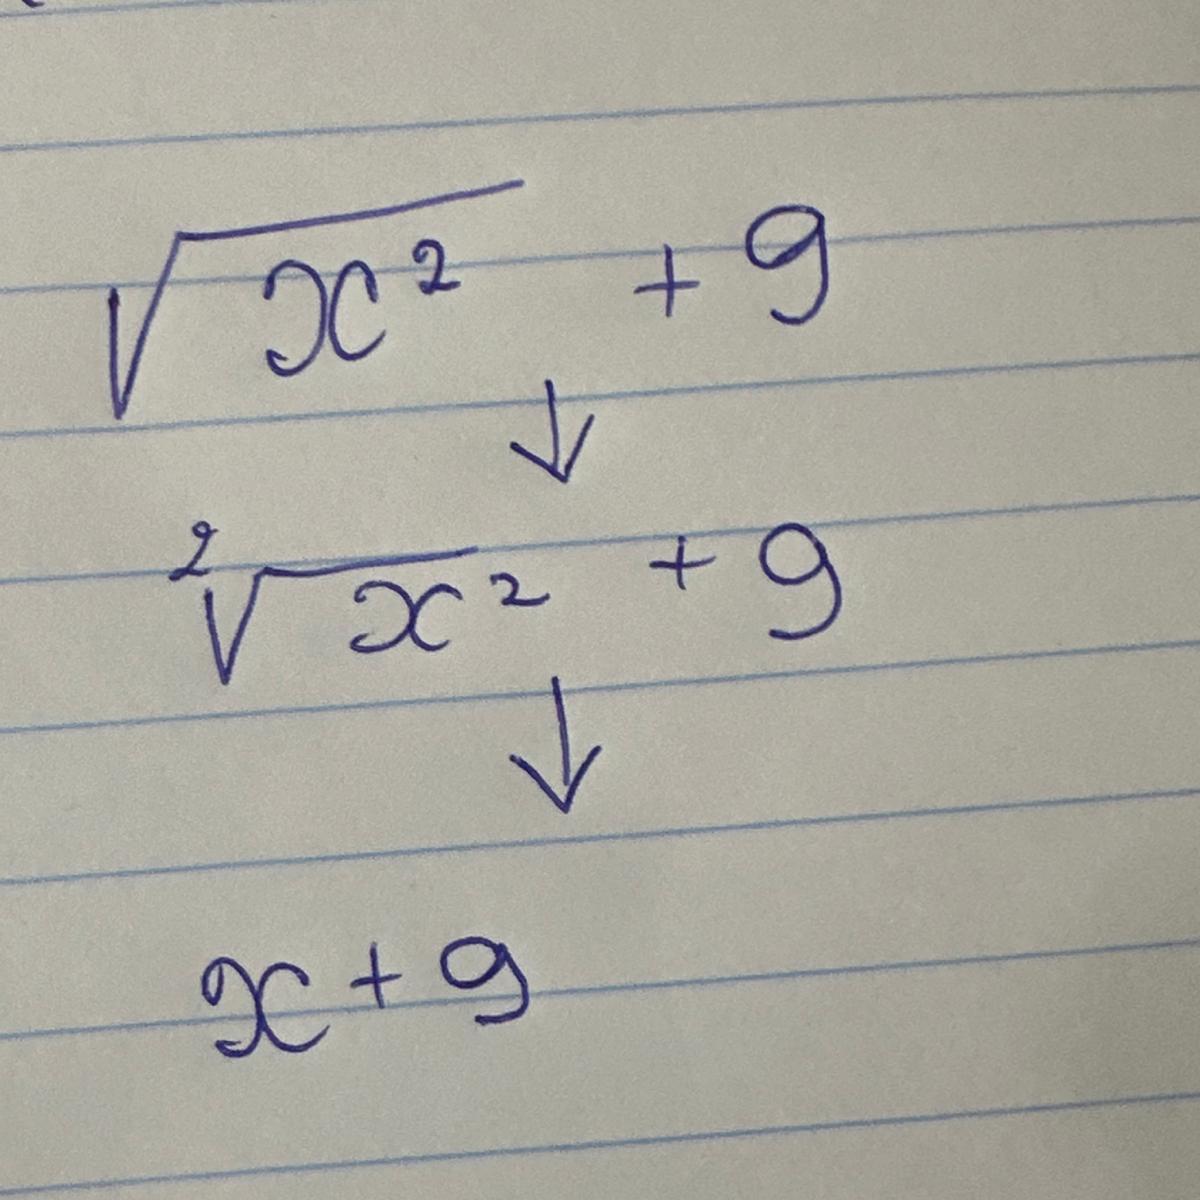 √x² + 9
↓
²√x² + 9
↓
x + 9